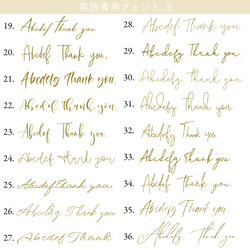 英語専用フォント.2
19. Abcdef Thank you.
20. Abcdef. Thank you,
21. Abcdefg Thank you
22. Abcdef Thank you.
23. Abcdef Thank you.
24. Abcdef Thank you
25. Abcdef Thank you.
26. Abcdefg Thank you
27. Abcdef Thank
28. Abcdef Thank you.
29. Abcdefg Thank you.
30. Abcdefg Thank you
31. Abcdefg Thank you
32. Abcdef Thank you
33. Abcdefg Thank you
34. Abcdef Thank you.
35. Abcdefg Thank you.
36. Abcdef Thank you.